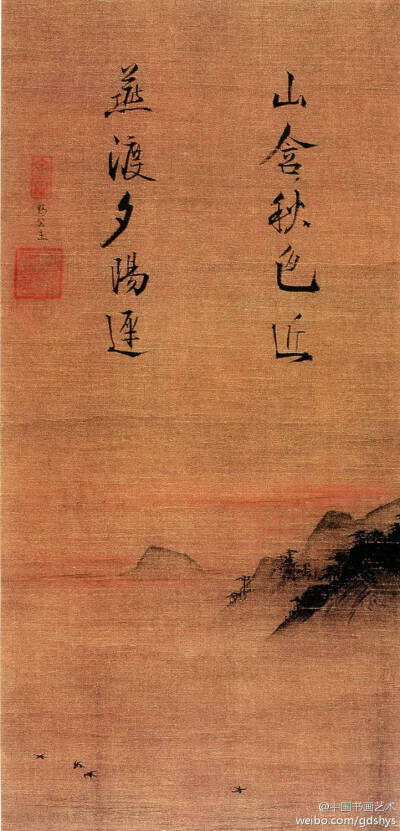 山含秋色近
燕渡夕陽遲
賜公主
@中国书画艺术
weibo.com/gdshys